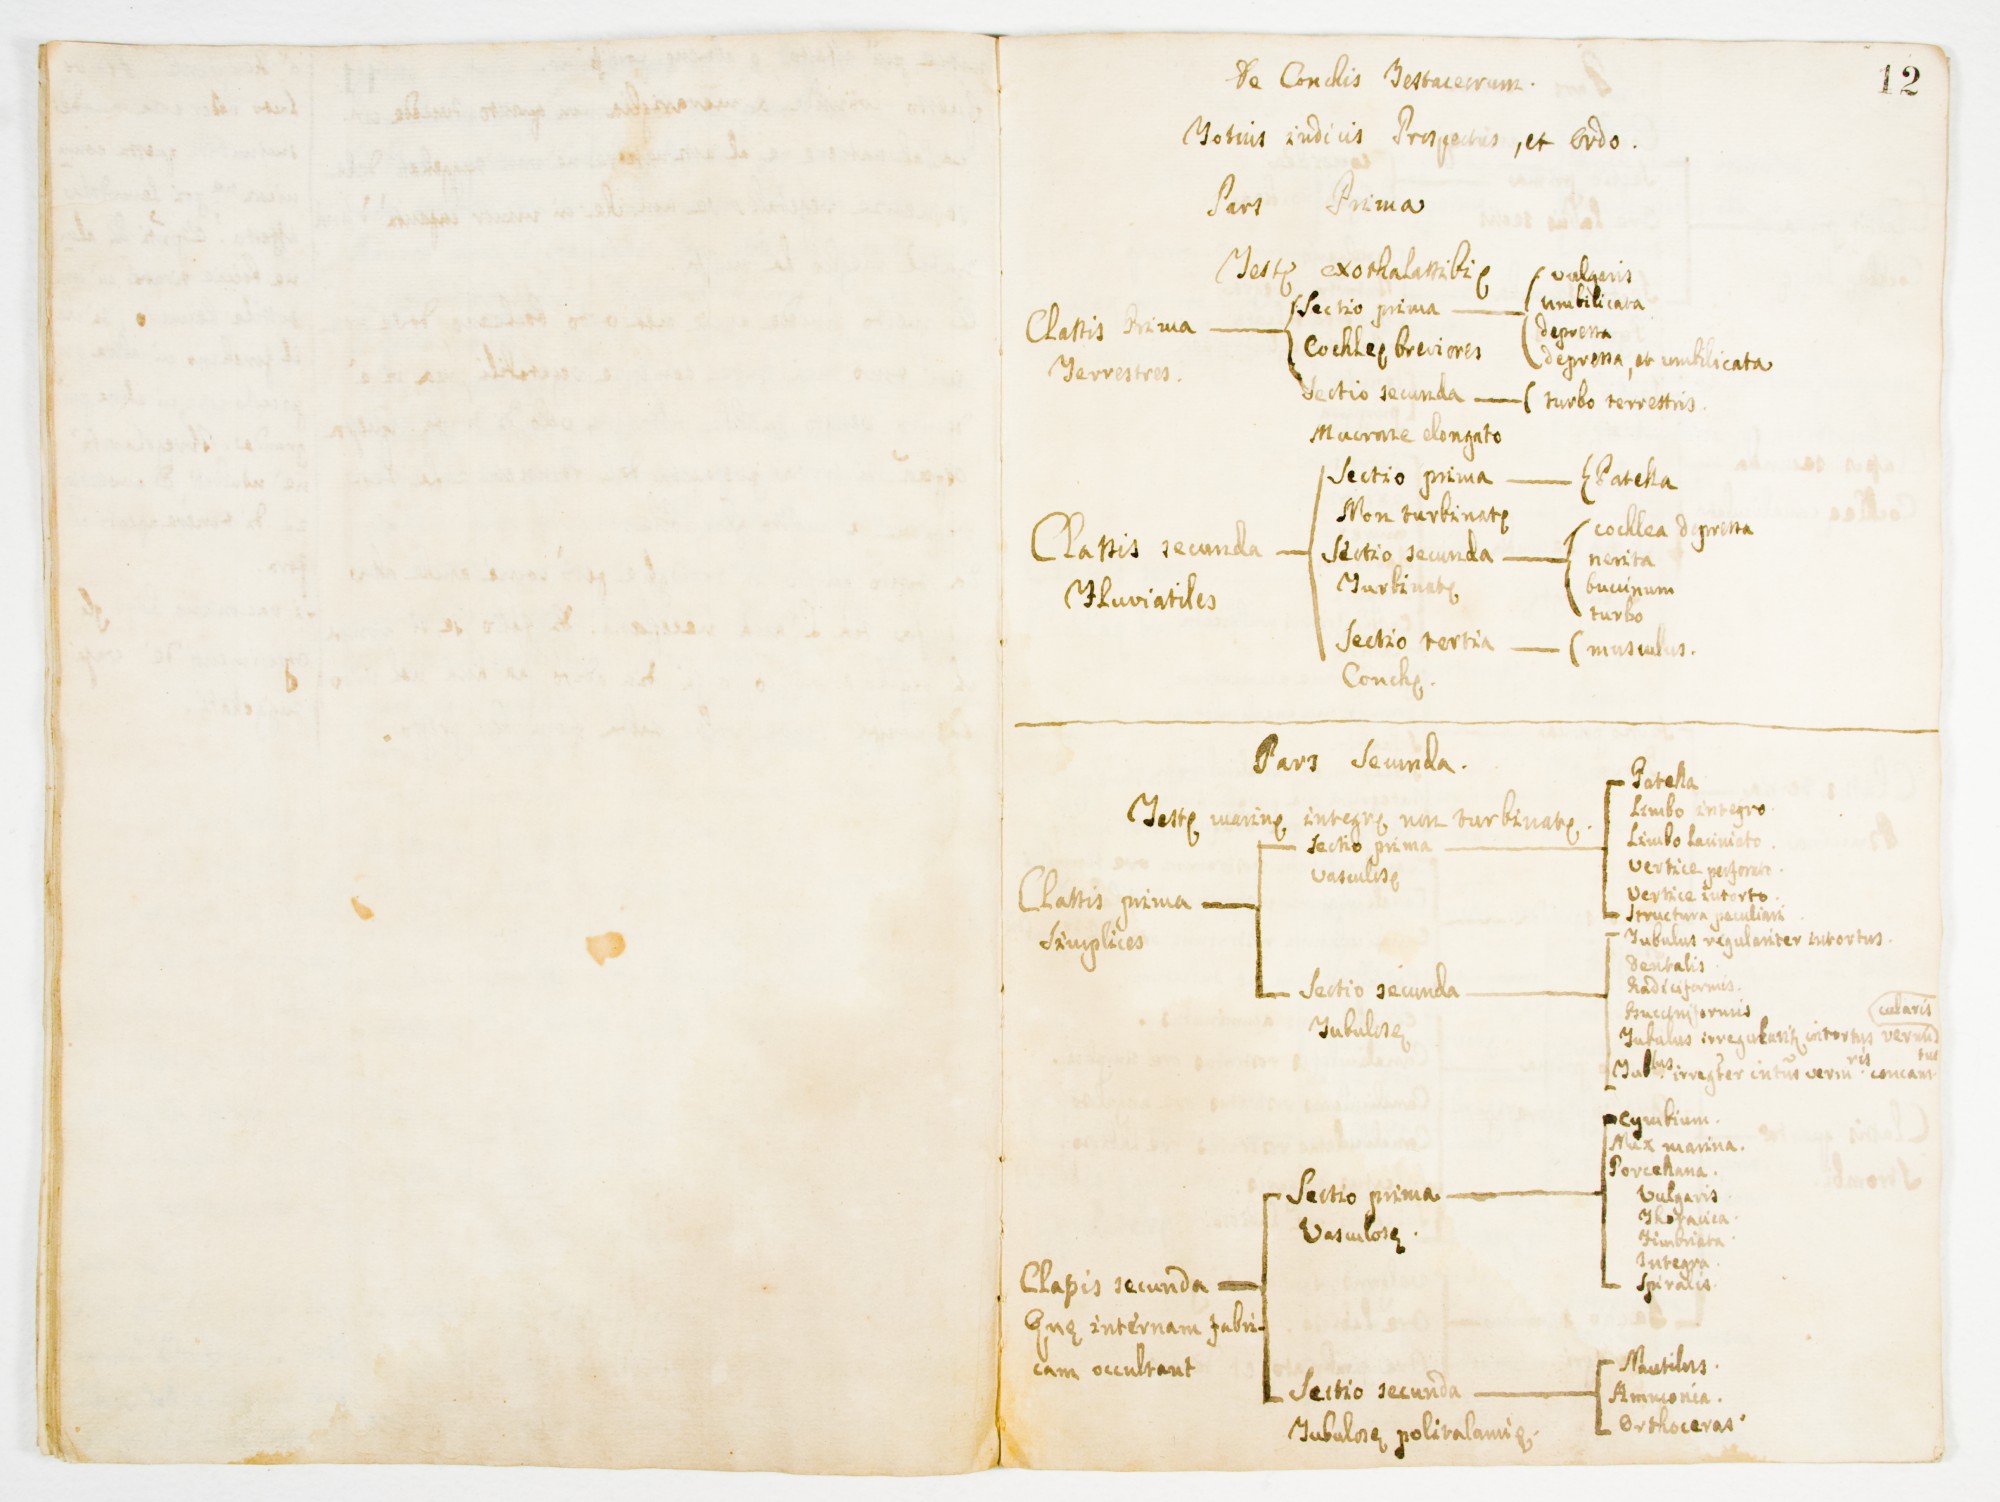 12
De Conchis Testaceorum.
Totius indicis Prospectus, et Ordo.
Pars Prima
Testę exothalassibię
Classis Prima
Terrestres.
Sectio prima
Cochleę breviores
vulgaris
umbilicata
depressa
depressa, et umbilicata
Sectio secunda
Mucrone elongato
turbo terrestris.
Classis secunda
Fluviatiles
Sectio prima
Non turbinatę
Patella
Sectio secunda
Turbinatę
cochlea depressa
nerita
buccinum
turbo
Sectio tertia
Conchę.
musculus.
Pars Secunda.
Testę marinę integrę non turbinatę.
Classis prima
Simplices
Sectio prima
vasculosę
Patella
Limbo integro.
Limbo laciniato.
vertice perforato.
vertice intorto.
Structura peculiari
Sectio secunda
Tubulosę
Tubulus regulariter intortus.
dentalis
Radiciformis.
Bucciniformis
Tubulus irregulariter intortus vermi
cularis
Tublus. irregter intus verm ris concam
tus
Classis secunda
Quę internam fabri-
cam occultant
Sectio prima
Vasculosę.
cymbium.
Nux marina.
Porcellana.
Vulgaris
Thoracica.
Fimbriata
Integra.
Spiralis.
Sectio secunda
Tubulosę politalamię.
Nautilus.
Ammonia.
Orthoceras